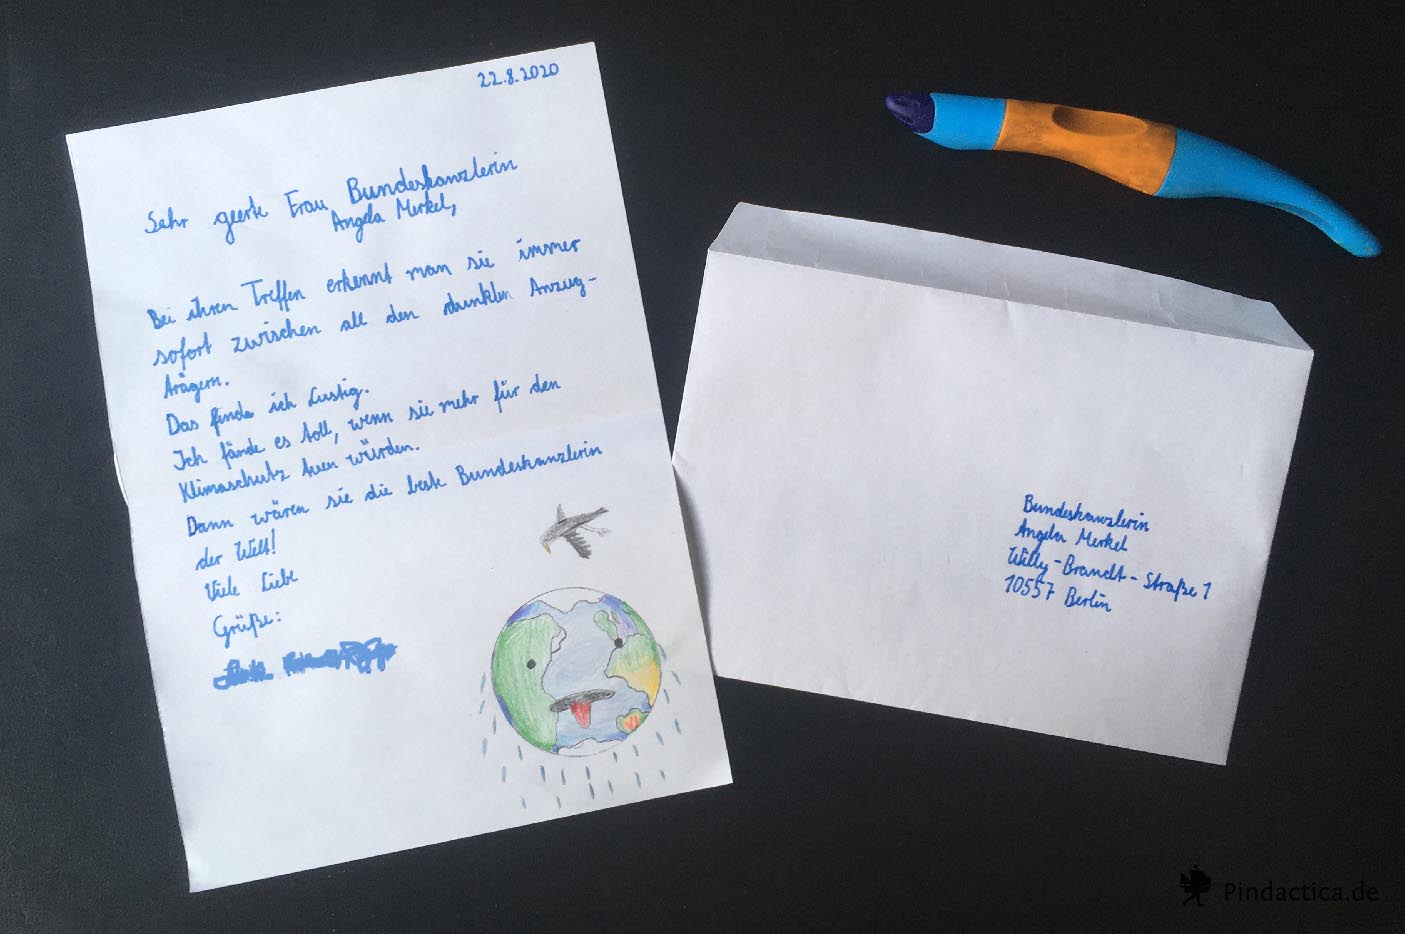 22.8.2020
Sehr geerte Frau Bundeskanzlerin
Angela Merkel,
Bei ihren Treffen erkennt man sie immer
sofort zwischen all den dunklen Anzug-
trägern.
Das finde ich Lustig.
Ich fände es toll, wenn sie mehr für den
Klimaschutz tuen würden.
Dann wären sie die beste Bundeskanzlerin
der Welt!
Viele Liebe
Grüße:
Bundeskanzlerin
Angela Merkel
Willy-Brandt-Straße 1
10557 Berlin
Pindactica.de